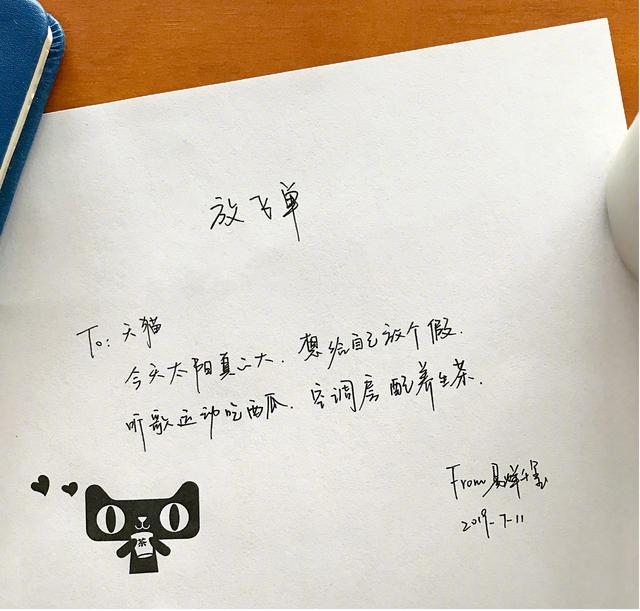 放飞单
To: 天猫
今天太阳真心大. 想给自己放个假.
听歌运动吃西瓜. 空调房配养生茶.
茶
From 易烊千玺
2019-7-11